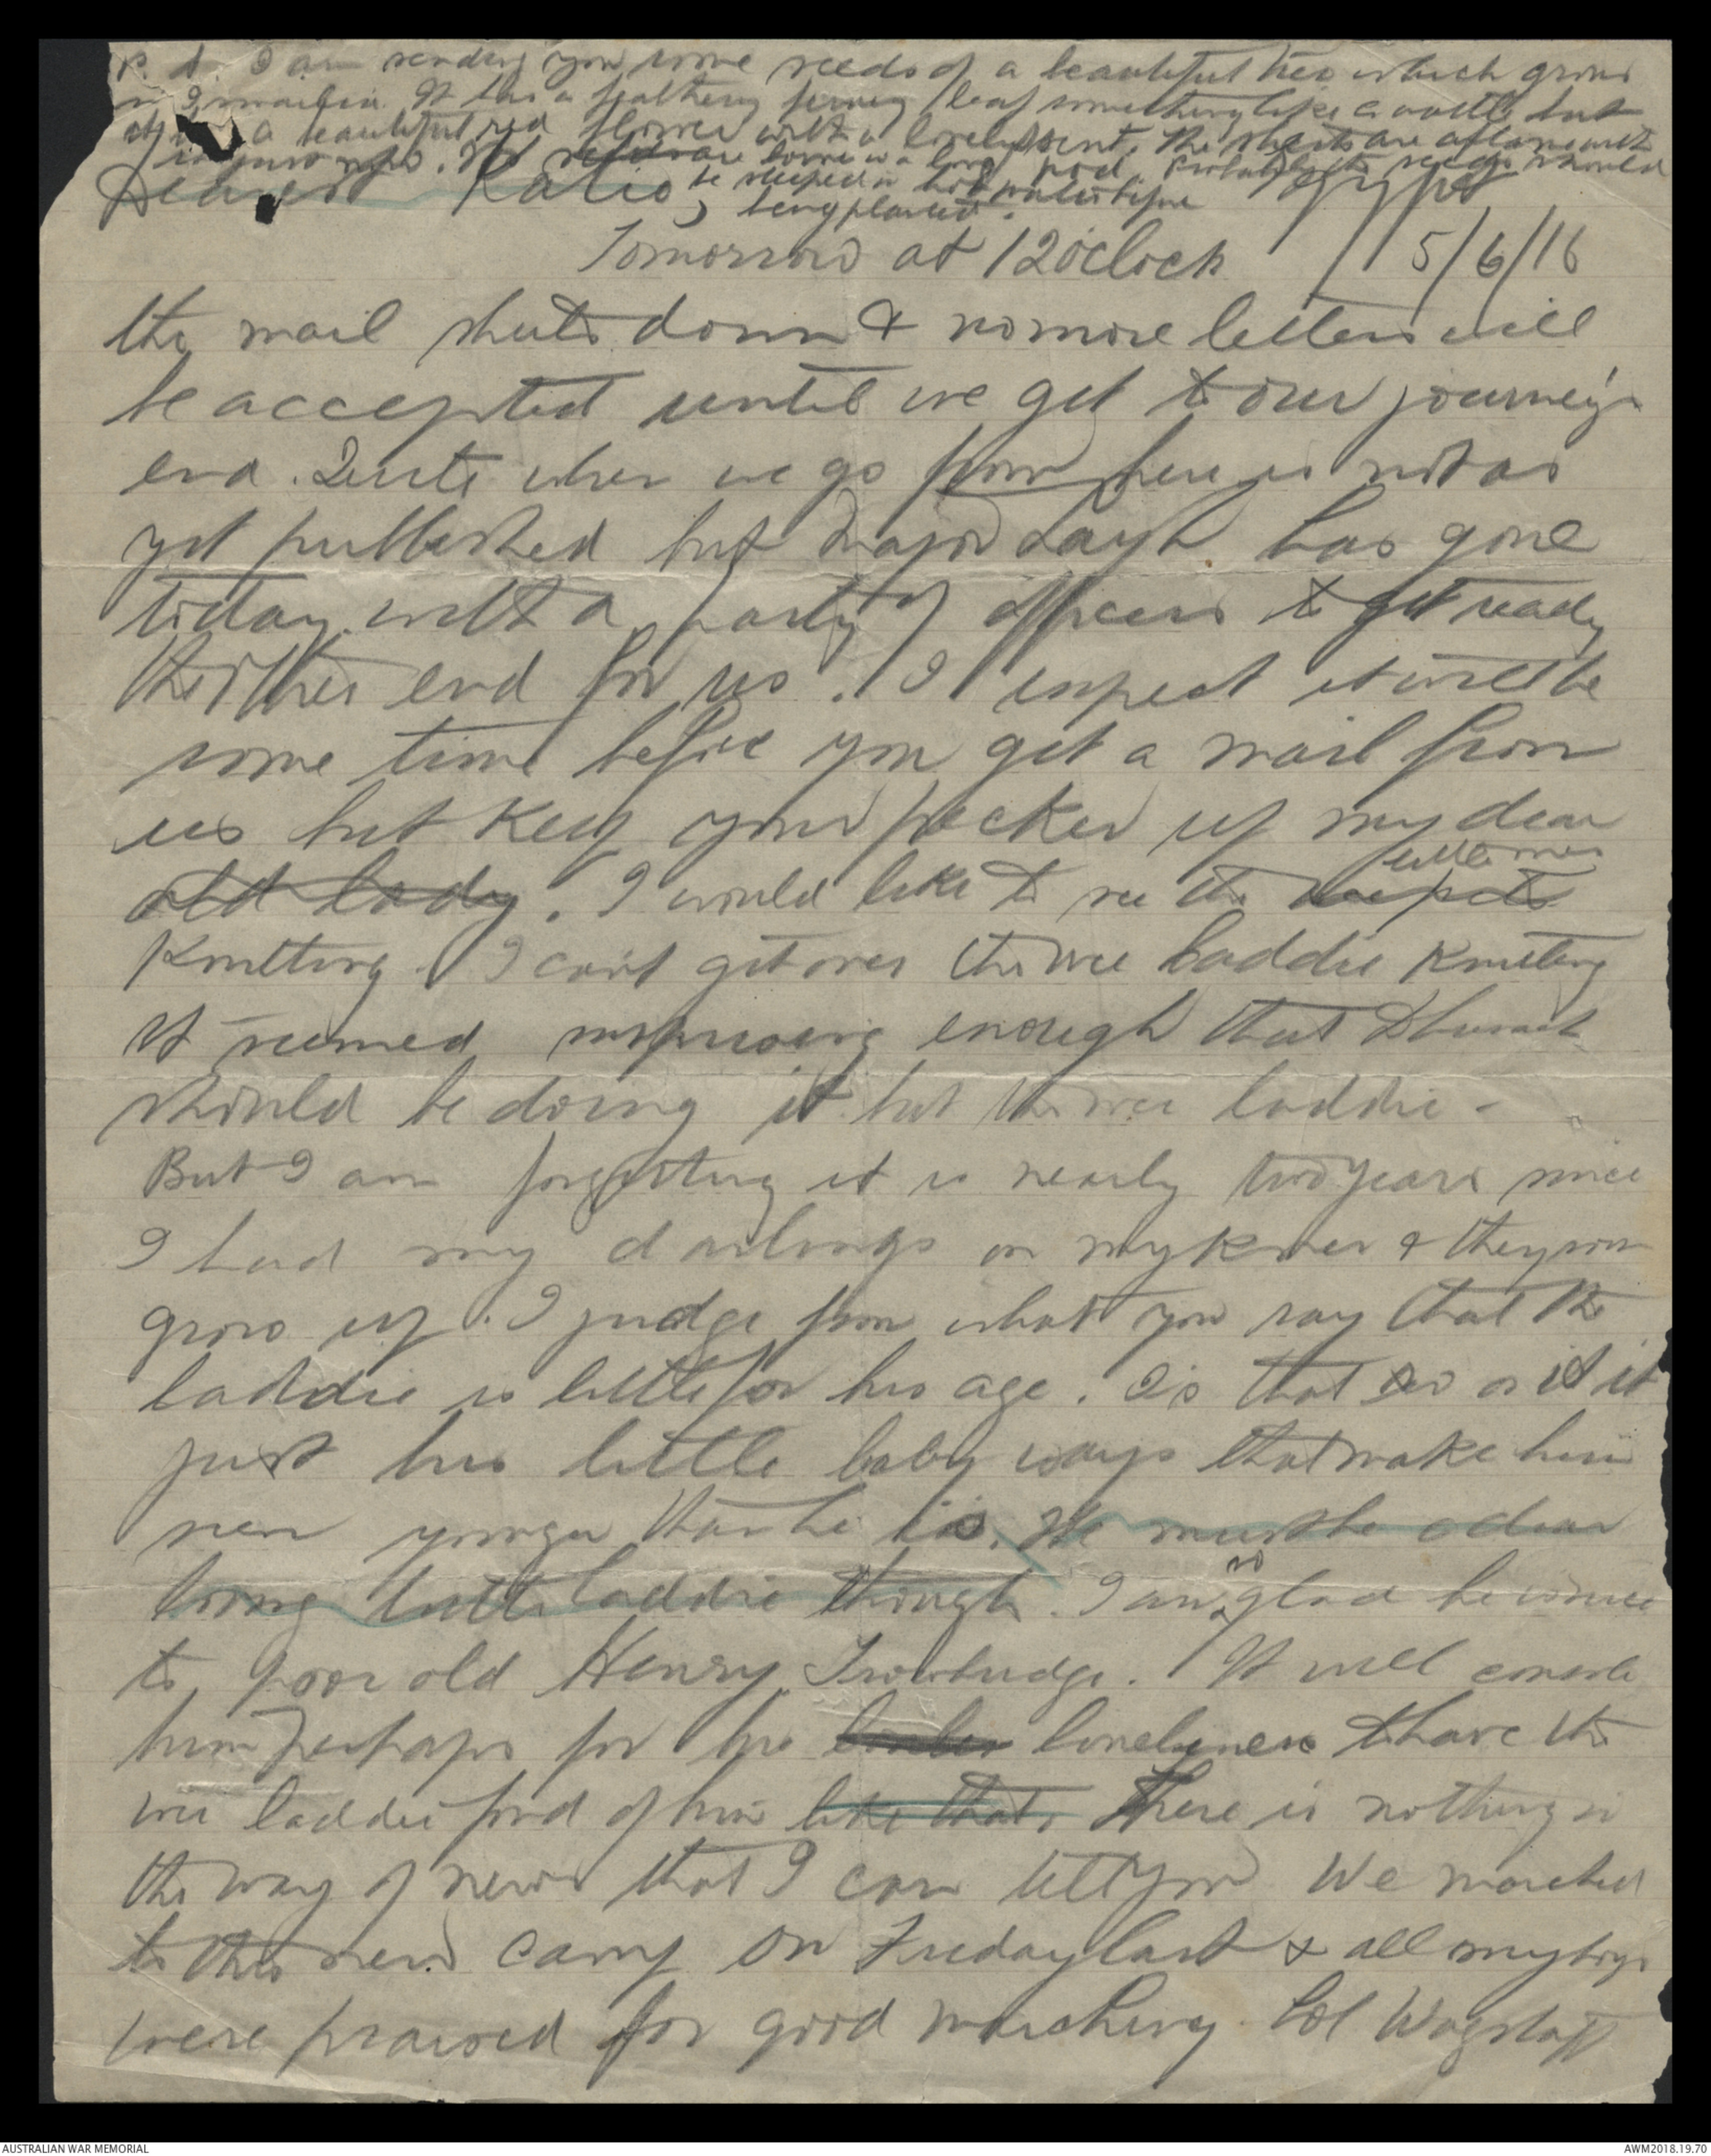 P.S. I am sending you some seeds of a beautiful tree which grows
in Ismailia. It has a feathery ferney leaf something like a wattle but
it a beautiful red flower with a lovely scent. The streets are aflame with
it just now. The seeds are borne in a long pod. Probably the seeds should
be steeped in hot water before
being planted.
Dearest Katie,
Egypt
5/6/16
Tomorrow at 12 oclock
the mail shuts down & no more letters will
be accepted until we get to our journey's
end. Quite when we go from here is not as
yet published but Major Layh has gone
today with a party of officers to get ready
the other end for us. I expect it will be
some time before you get a mail from
us but keep your pecker up my dear
old lady. I would like to see the little ones
knitting. I can't get over the wee laddie knitting
It seemed surprising enough that
should be doing it but the wee laddie -
But I am forgetting it is nearly two years since
I had my darlings on my knee & they soon
grow up. I judge from what you say that the
laddie is little for his age. Is that so or is it
just his little baby ways that make him
seem younger than he is. He must be a dear
loving little laddie though. I am so glad he
to poor old Henry Trowbridge. It will console
him perhaps for his loneliness to have the
wee laddie fond of him like that. There is nothing in
the way of news that I can tell you We marched
to this new camp on Friday last & all my boys
were praised for good marching. Col Wagstaff
AUSTRALIAN WAR MEMORIAL
AWM2018.19.70